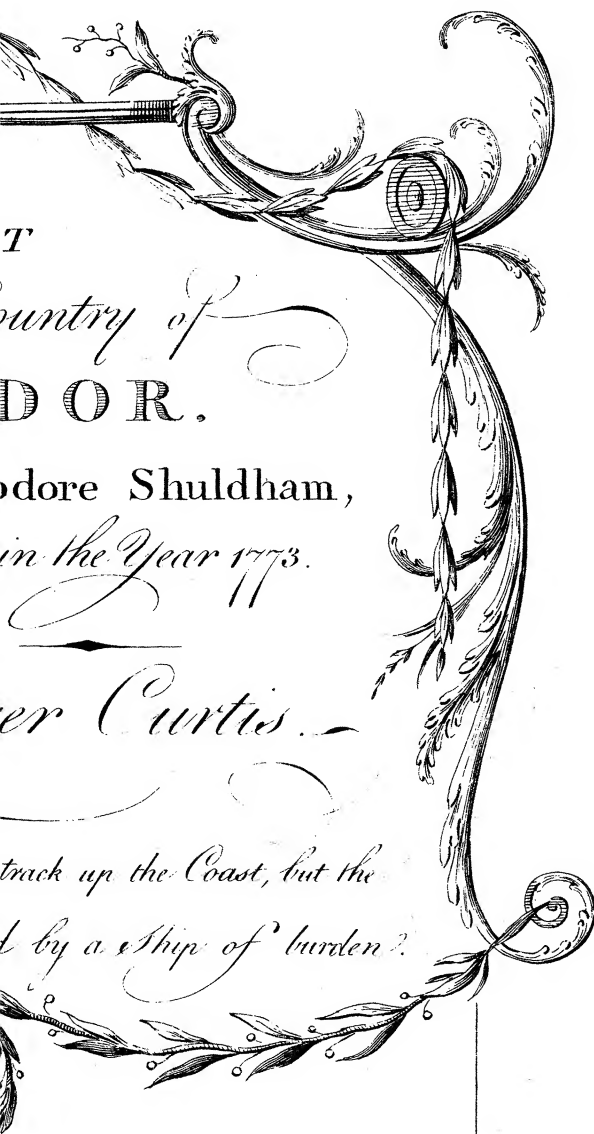 T
ountry of
DOR.
odore Shuldham,
in the Year 1773.
er Curtis.
track up the Coast, but the
d by a Ship of burden.